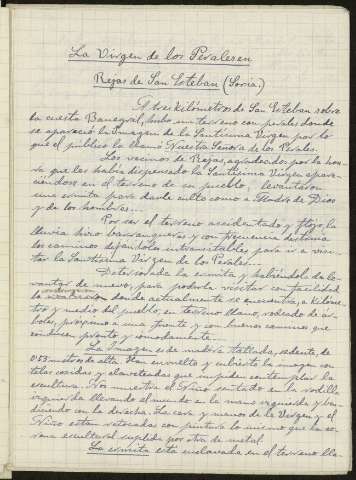 La Virgen de los Perales en
Rejas de San Esteban (Soria)
A tres kilómetros de San Esteban sobre
la cuesta Banegral, hubo un terreno con perales donde
se apareció la Imagen de la Santísima Virgen por lo
que el público la llamó Nuestra Señora de los Perales.
Los vecinos de Rejas, agradecidos por la hon-
ra que les había dispensado la Santísima Virgen apare-
ciéndose en el terreno de su pueblo, levantaron
una ermita para darle culto como a Madre de Dios
y de los hombres...
Por ser el terreno accidentado y flojo, la
lluvia hizo barranqueras y con frecuencia destruía
los caminos dejándoles intransitables para ir a visi-
tar la Santísima Virgen de los Perales...
Deteriorada la ermita y habiéndola de le-
vantar de nuevo, para poderla visitar con facilidad
la donde actualmente se encuentra, a kilóme-
tro y medio del pueblo, en terreno llano, rodeado de ár-
boles, próximo a una fuente y con buenos caminos que
conducen pronto y cómodamente...
La Imagen es de madera tallada, sedente, de
0'83 metros de alta. Han envuelto y cubierto la imagen con
telas cosidas y claveteadas que impiden contemplar la
escultura. Nos muestra el Niño sentado en la rodilla
izquierda llevando el mundo en la mano izquierda y ben-
diciendo con la derecha. La cara y manos de la Virgen y el
Niño están retocadas con pintura lo mismo que la co-
rona escultural suplida por otra de metal.
La ermita está enclavada en el terreno lla-